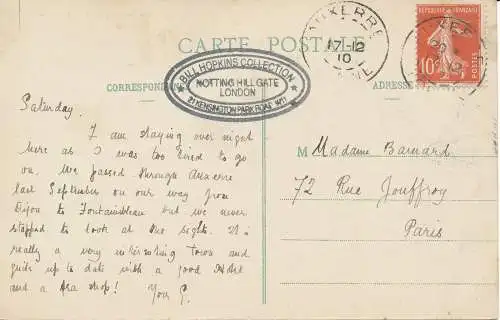 CARTE POSTALE
CORRESPONDANCE
ADRESSE
BILL HOPKINS COLLECTION
NOTTING HILL GATE
LONDON
21 KENSINGTON PARK ROAD W11
AUXERRE
17-12
10
YONNE
REPUBLIQUE FRANÇAISE
10c
POSTES
Saturday.
I am staying over night
here as I was too tired to go
on. We passed through Auxerre
last September on our way from
Dijon to Fontainbleau but we never
stopped to look at the sights. It is
really a very interesting town and
quite up to date with a good Hotel
and a tea shop! Your G.
M
Madame Barnard
72 Rue Jouffroy
Paris